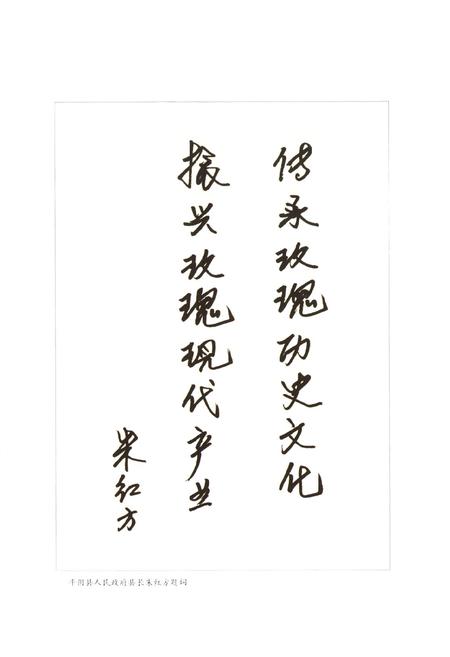 传承玫瑰历史文化
振兴玫瑰现代产业
朱红方
平阴县人民政府县长朱红方题词